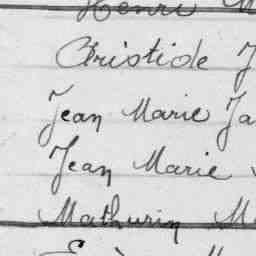 Henri
Aristide J
Jean Marie Ja
Jean Marie
Mathurin M